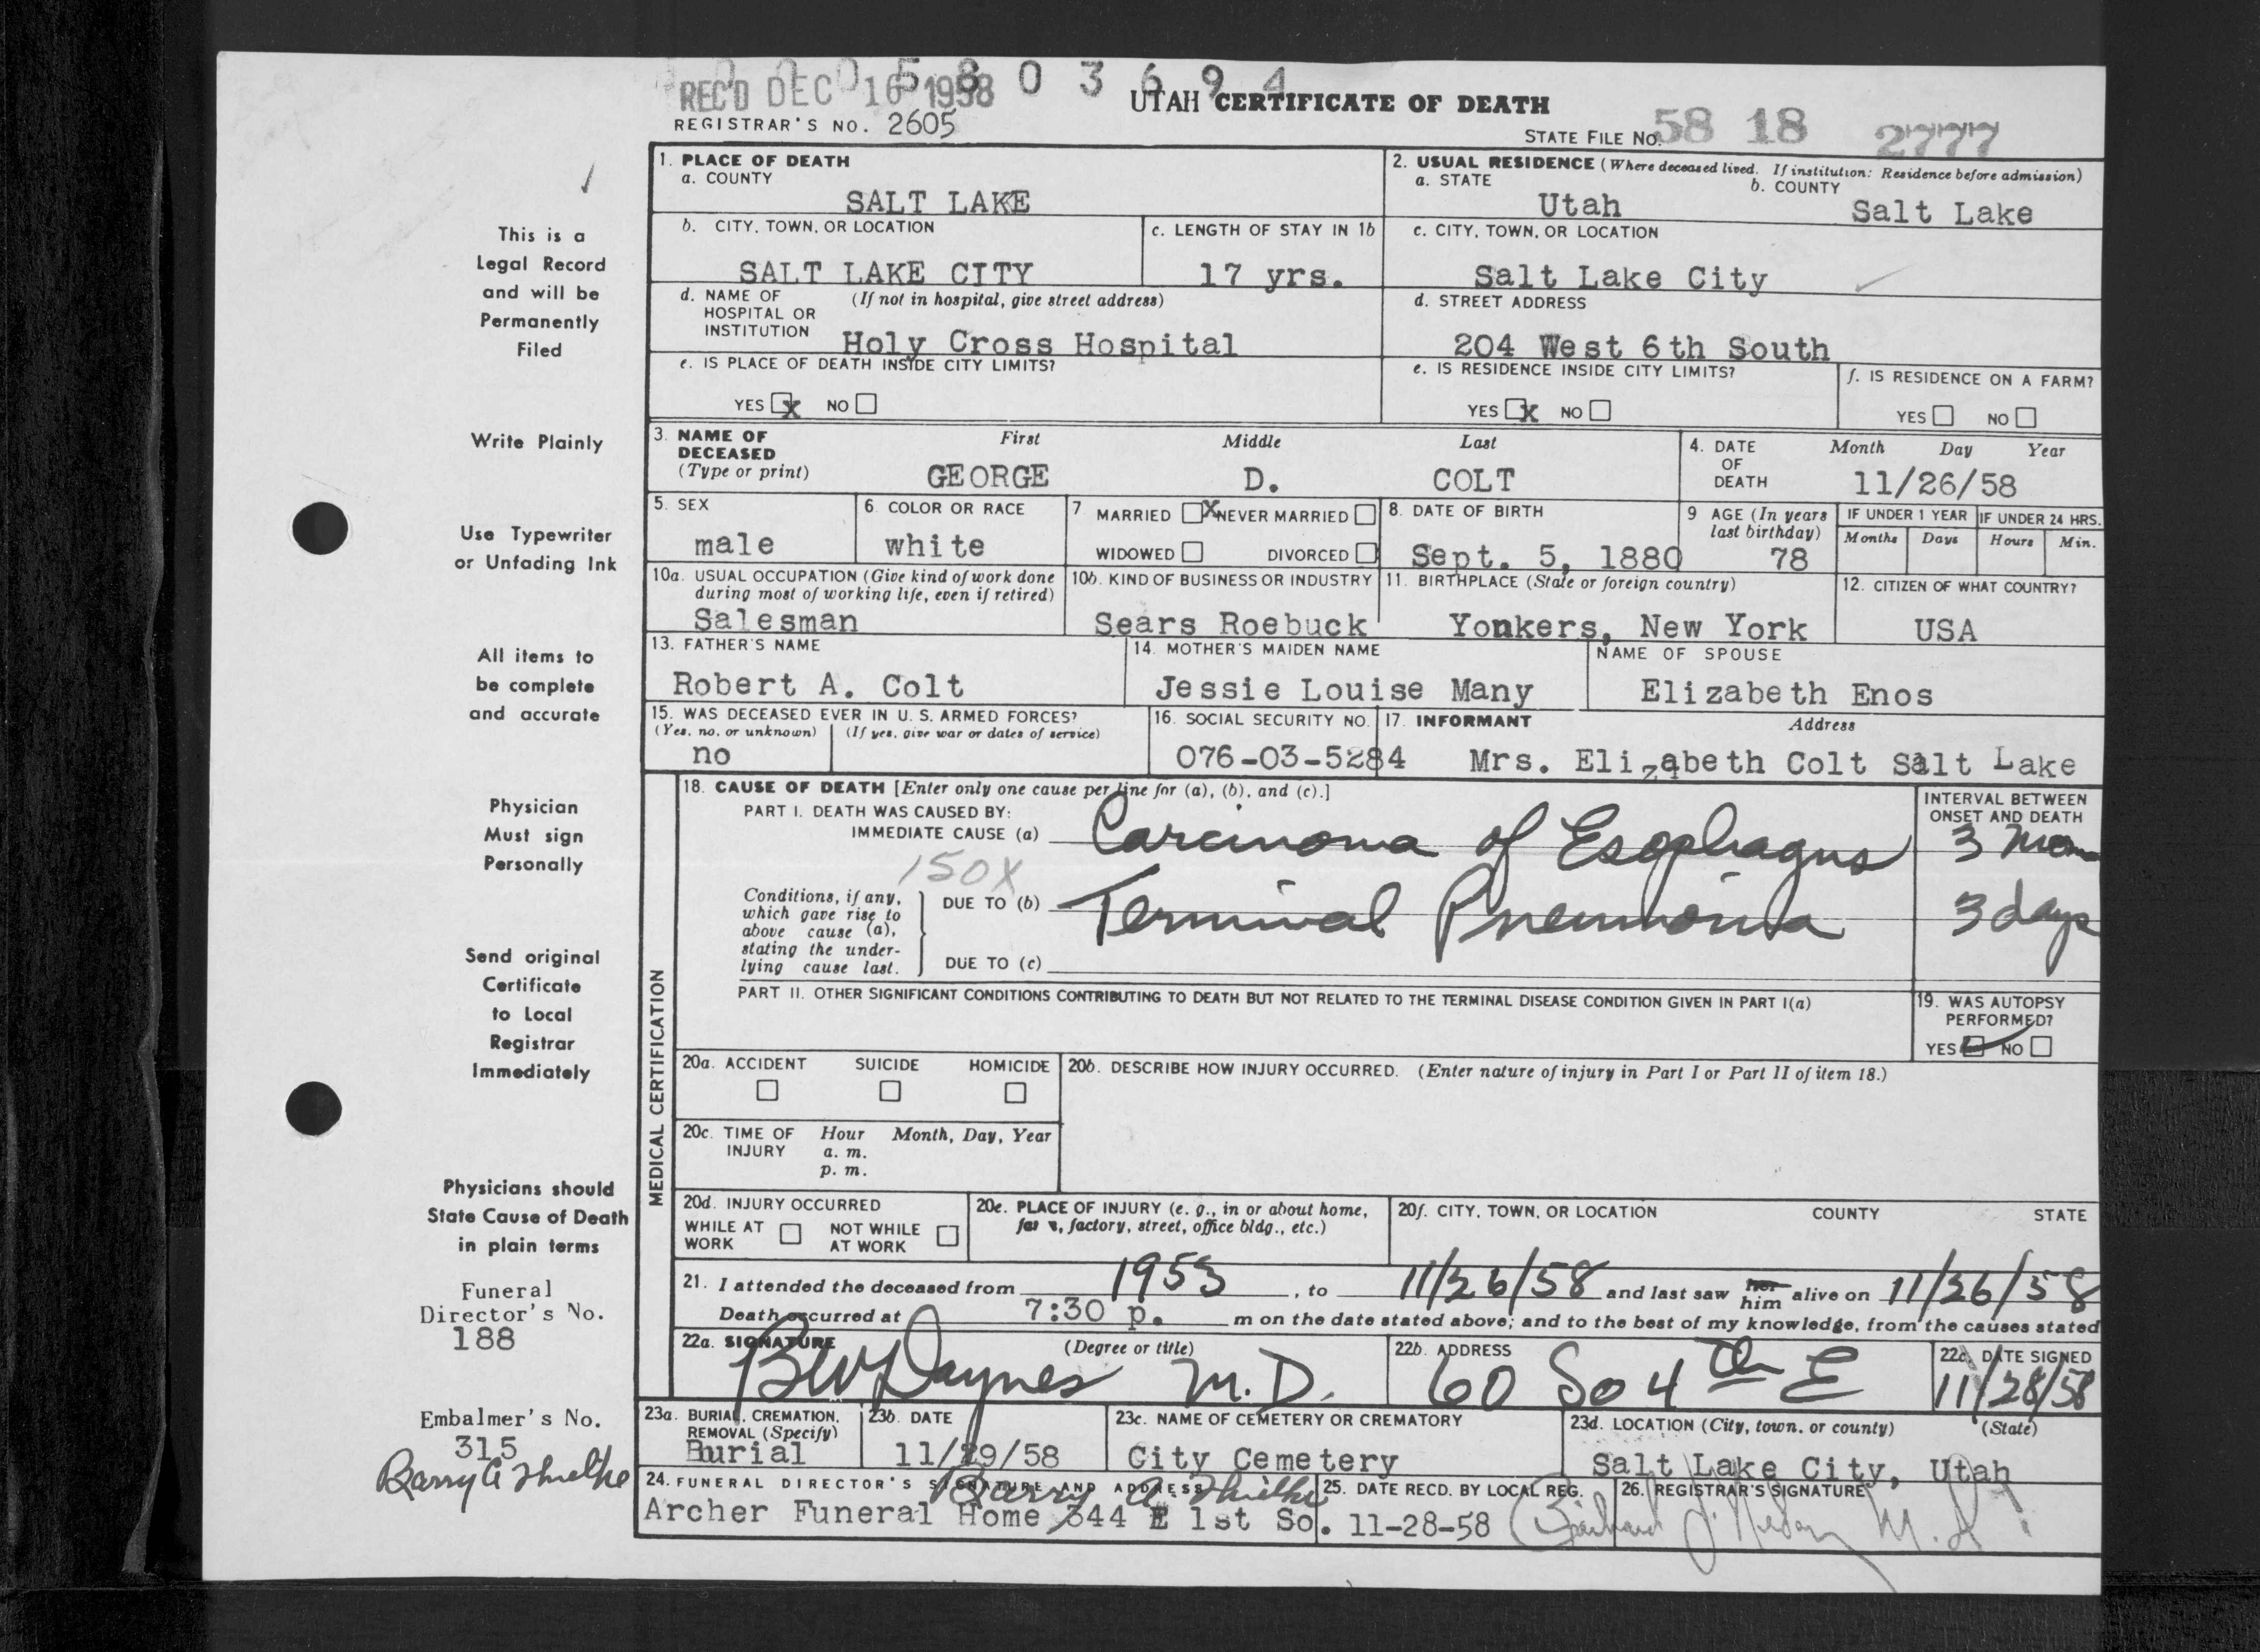 0 0 0 5 8 0 3 6 9 4
REC'D DEC 16 1958
UTAH CERTIFICATE OF DEATH
REGISTRAR'S NO. 2605
STATE FILE NO. 58 18 2777
This is a
Legal Record
and will be
Permanently
Filed
Write Plainly
Use Typewriter
or Unfading Ink
All items to
be complete
and accurate
Physician
Must sign
Personally
Send original
Certificate
to Local
Registrar
Immediately
Physicians should
State Cause of Death
in plain terms
Funeral
Director's No.
188
Embalmer's No.
315
Barry A Thielke
1. PLACE OF DEATH
a. COUNTY
SALT LAKE
b. CITY, TOWN, OR LOCATION
SALT LAKE CITY
c. LENGTH OF STAY IN 1b
17 yrs.
d. NAME OF (If not in hospital, give street address)
HOSPITAL OR
INSTITUTION Holy Cross Hospital
e. IS PLACE OF DEATH INSIDE CITY LIMITS?
YES X NO
2. USUAL RESIDENCE (Where deceased lived. If institution: Residence before admission)
a. STATE b. COUNTY
Utah Salt Lake
c. CITY, TOWN, OR LOCATION
Salt Lake City
d. STREET ADDRESS
204 West 6th South
e. IS RESIDENCE INSIDE CITY LIMITS?
YES X NO
f. IS RESIDENCE ON A FARM?
YES NO
3. NAME OF DECEASED (Type or print)
First Middle Last
GEORGE D. COLT
4. DATE OF DEATH
Month Day Year
11/26/58
5. SEX
male
6. COLOR OR RACE
white
7 MARRIED X NEVER MARRIED
WIDOWED DIVORCED
8. DATE OF BIRTH
Sept. 5, 1880
9 AGE (In years last birthday)
78
IF UNDER 1 YEAR IF UNDER 24 HRS.
Months Days Hours Min.
10a. USUAL OCCUPATION (Give kind of work done
during most of working life, even if retired)
Salesman
10b. KIND OF BUSINESS OR INDUSTRY
Sears Roebuck
11. BIRTHPLACE (State or foreign country)
Yonkers, New York
12. CITIZEN OF WHAT COUNTRY?
USA
13. FATHER'S NAME
Robert A. Colt
14. MOTHER'S MAIDEN NAME
Jessie Louise Many
NAME OF SPOUSE
Elizabeth Enos
15. WAS DECEASED EVER IN U. S. ARMED FORCES?
(Yes, no, or unknown) (If yes, give war or dates of service)
no
16. SOCIAL SECURITY NO.
076-03-5284
17. INFORMANT Address
Mrs. Elizabeth Colt Salt Lake
MEDICAL CERTIFICATION
18. CAUSE OF DEATH [Enter only one cause per line for (a), (b), and (c).]
PART I. DEATH WAS CAUSED BY:
IMMEDIATE CAUSE (a) Carcinoma of Esophagus
150X
Conditions, if any,
which gave rise to
above cause (a),
stating the under-
lying cause last.
DUE TO (b) Terminal Pneumonia
DUE TO (c)
INTERVAL BETWEEN
ONSET AND DEATH
3 mon
3 days
PART II. OTHER SIGNIFICANT CONDITIONS CONTRIBUTING TO DEATH BUT NOT RELATED TO THE TERMINAL DISEASE CONDITION GIVEN IN PART I(a)
19. WAS AUTOPSY
PERFORMED?
YES NO
20a. ACCIDENT SUICIDE HOMICIDE
20b. DESCRIBE HOW INJURY OCCURRED. (Enter nature of injury in Part I or Part II of item 18.)
20c. TIME OF Hour Month, Day, Year
INJURY a. m.
p. m.
20d. INJURY OCCURRED
WHILE AT WORK NOT WHILE AT WORK
20e. PLACE OF INJURY (e. g., in or about home,
farm, factory, street, office bldg., etc.)
20f. CITY, TOWN, OR LOCATION COUNTY STATE
21. I attended the deceased from 1953, to 11/26/58 and last saw her him alive on 11/26/58
Death occurred at 7:30 p. m on the date stated above; and to the best of my knowledge, from the causes stated
22a. SIGNATURE (Degree or title)
BW Daynes M.D.
22b. ADDRESS
60 So 4th E
22c. DATE SIGNED
11/28/58
23a. BURIAL, CREMATION,
REMOVAL (Specify)
Burial
23b. DATE
11/29/58
23c. NAME OF CEMETERY OR CREMATORY
City Cemetery
23d. LOCATION (City, town, or county) (State)
Salt Lake City, Utah
24. FUNERAL DIRECTOR'S SIGNATURE AND ADDRESS
Barry A. Thielke
Archer Funeral Home 344 E 1st So.
25. DATE RECD. BY LOCAL REG.
11-28-58
26. REGISTRAR'S SIGNATURE